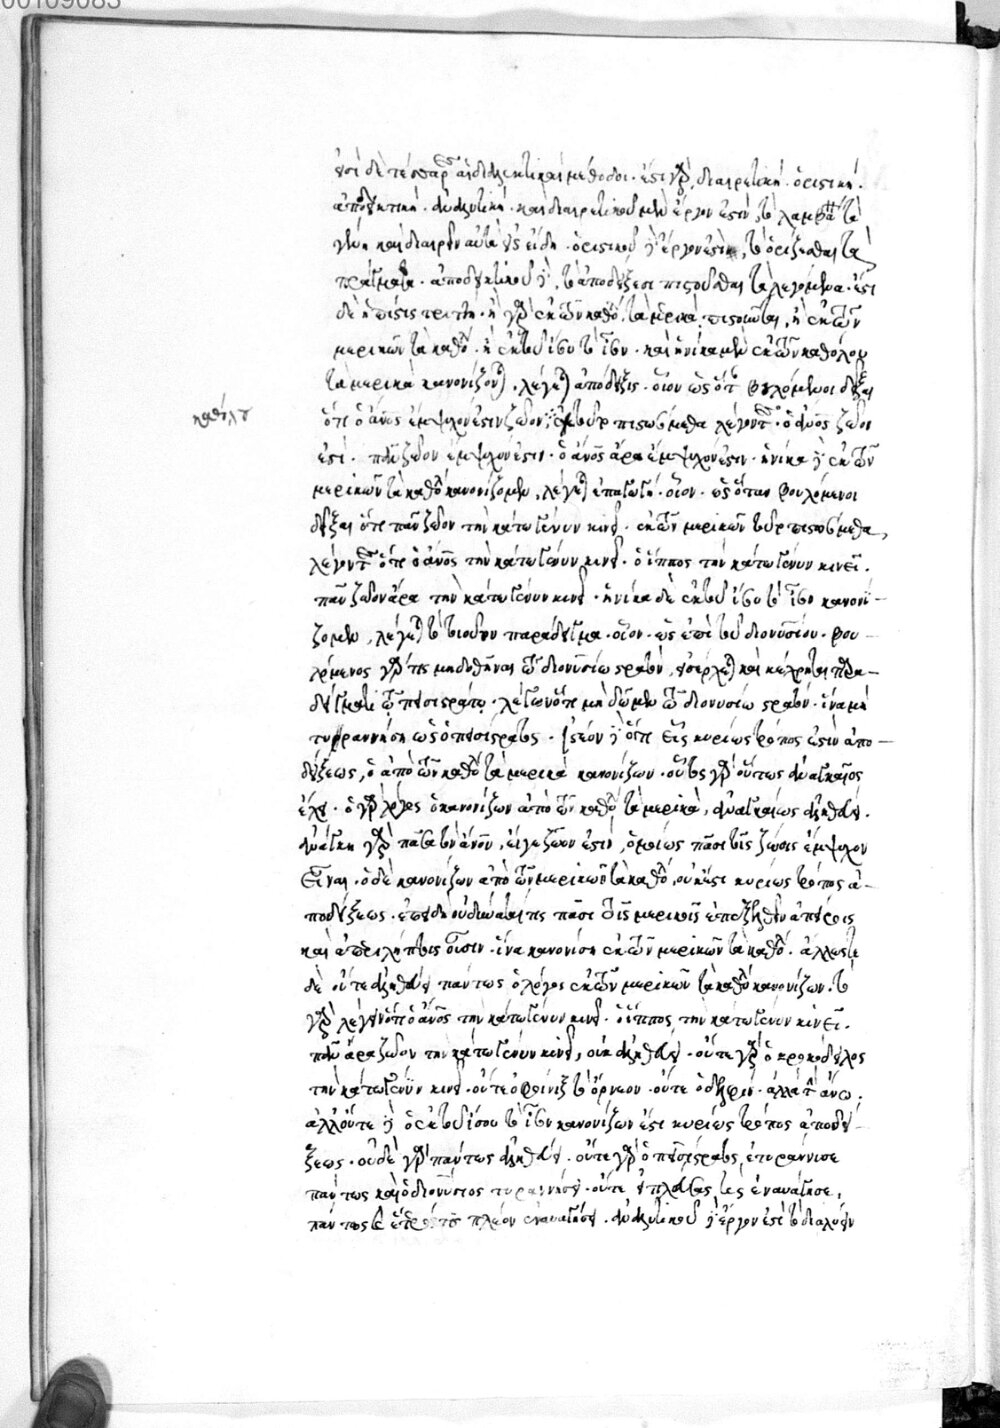 00109083
εἰσὶ δὲ τέσσαρες αἱ διαλεκτικαὶ μέθοδοι. ἔστι γὰρ, διαιρετικὴ. ὁριστικὴ.
ἀποδεικτικὴ. ἀναλυτικὴ. καὶ διαιρετικοῦ μὲν ἔργον ἐστὶν, τὸ λαμβάνειν τὰ
γένη καὶ διαιρεῖν αὐτὰ εἰς εἴδη. ὁριστικοῦ δὲ ἔργον ἐστὶν, τὸ ὁρίζεσθαι τὰ
πράγματα. ἀποδεικτικοῦ δὲ, τὸ ἀποδείξεσι πιστοῦσθαι τὰ λεγόμενα. ἔστι
δὲ ἡ πίστις τριττή. ἢ γὰρ ἐκ τῶν καθόλου τὰ μερικὰ πιστοῦται, ἢ ἐκ τῶν
μερικῶν τὰ καθόλου. ἢ ἐκ τοῦ ἴσου τὸ ἴσον. καὶ ἡνίκα μὲν ἐκ τῶν καθόλου
τὰ μερικὰ κανονίζονται, λέγεται ἀπόδειξις. οἷον ὡς ὅταν βουλόμενοι δεῖξαι
καθόλου
ὅτι ὁ ἄνος ἔμψυχόν ἐστιν ζῶον, ἐκ τοῦ πιστωσόμεθα λέγοντες. ὁ ἄνος ζῶόν
ἐστι. πᾶν ζῶον ἔμψυχόν ἐστιν. ὁ ἄνος ἄρα ἔμψυχόν ἐστιν. ἡνίκα δὲ ἐκ τῶν
μερικῶν τὰ καθόλου κανονίζομεν, λέγεται ἐπαγωγή. οἷον. ὡς ὅταν βουλόμενοι
δεῖξαι ὅτι πᾶν ζῶον τὴν κάτω γένυν κινεῖ. ἐκ τῶν μερικῶν τοῦτο πιστωσόμεθα,
λέγοντες ὅτι ὁ ἄνος τὴν κάτω γένυν κινεῖ. ὁ ἵππος τὴν κάτω γένυν κινεῖ.
πᾶν ζῶον ἄρα τὴν κάτω γένυν κινεῖ. ἡνίκα δὲ ἐκ τοῦ ἴσου τὸ ἴσον κανονί-
ζομεν, λέγεται τὸ τοιοῦτον παράδειγμα. οἷον. ὡς ἐπὶ τοῦ διονυσίου. βου-
λόμενος γάρ τις μὴ δοθῆναι τῶ διονυσίω στρατὸν, εἰσέρχεται καὶ κέχρηται παρα-
δείγματι τῶ πεισιστράτω. λέγων ὅτι μὴ δῶμεν τῶ διονυσίω στρατόν. ἵνα μὴ
τυραννήση ὡς ὁ πεισίστρατος. ἰστέον δὲ ὅτι εἷς κυρίως τρόπος ἐστὶν ἀπο-
δείξεως, ὁ ἀπὸ τῶν καθόλου τὰ μερικὰ κανονίζων. οὗτος γὰρ οὕτως ἀναγκαῖος
ἔχει. ὁ γὰρ λόγος ὁ κανονίζων ἀπὸ τῶν καθόλου τὰ μερικὰ, ἀναγκαίως ἀληθεύει.
ἀνάγκη γὰρ πάντα τὸν ἄνον, εἴγε ζῶόν ἐστιν, ὁμοίως πᾶσι τοῖς ζώοις ἔμψυχον
εἶναι. ὁ δὲ κανονίζων ἀπὸ τῶν μερικῶν τὰ καθόλου, οὐκ ἔστι κυρίως τρόπος ἀ-
ποδείξεως. ἐπειδὴ οὐ δύναταί τις πᾶσι τοῖς μερικοῖς ἐπεξελθεῖν ἀπείροις
καὶ ἀπεριλήπτοις οὖσιν. ἵνα κανονίση ἐκ τῶν μερικῶν τὰ καθόλου. ἄλλως τε
δὲ οὔτε ἀληθεύει πάντως ὁ λόγος ἐκ τῶν μερικῶν τὰ καθόλου κανονίζων. τὸ
γὰρ λέγειν ὅτι ὁ ἄνος τὴν κάτω γένυν κινεῖ. ὁ ἵππος τὴν κάτω γένυν κινεῖ.
πᾶν ἄρα ζῶον τὴν κάτω γένυν κινεῖ, οὐκ ἀληθεύει. οὔτε γὰρ ὁ κροκόδειλος
τὴν κάτω γένυν κινεῖ. οὔτε ὁ φοίνιξ τὸ ὄρνεον. οὔτε ὁ δελφίν. ἀλλὰ τὴν ἄνω.
ἀλλ' οὔτε δὲ ὁ ἐκ τοῦ ἴσου τὸ ἴσον κανονίζων ἐστὶ κυρίως τρόπος ἀποδεί-
ξεως. οὐδὲ γὰρ πάντως ἀληθεύει. οὔτε γὰρ εἰ ὁ πεισίστρατος ἐτυράννισε
πάντως καὶ ὁ διονύσιος τυραννήσει. οὔτε εἰ πλεύσας τις ἐναυάγησε,
πάντως καὶ ἕτερός τις πλέων ἐναυάγησεν. ἀναλυτικοῦ δὲ ἔργον ἐστὶ τὸ διαλύειν